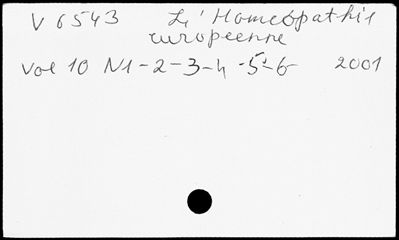 V 6543 L'Homeopathie
europeenne
Vol 10 N1-2-3-4-5-6 2001